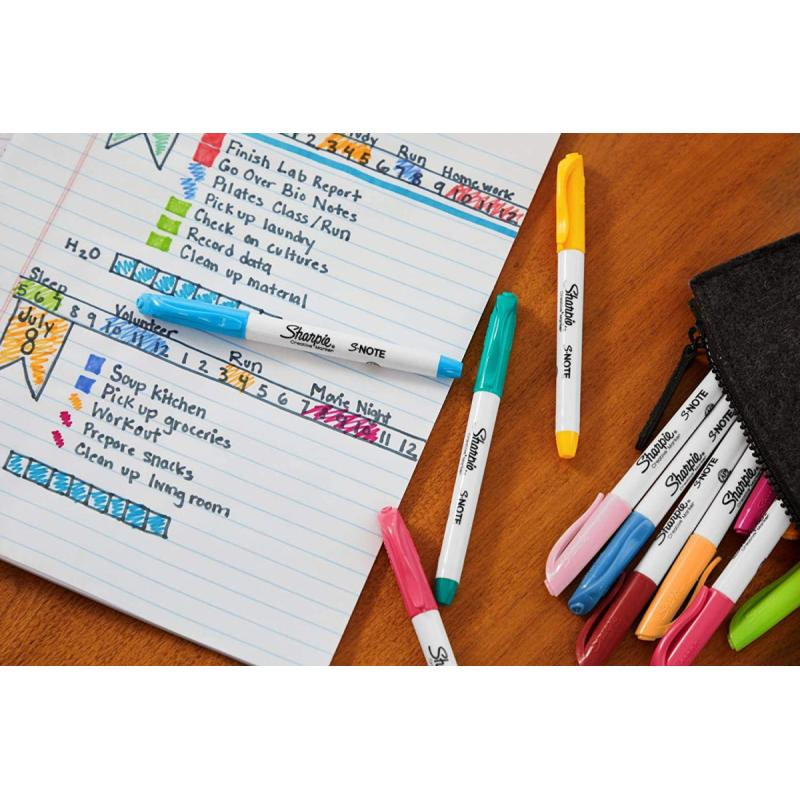 Study Run Homework
2 3 4 5 6 7 8 9 10 11 12
Finish Lab Report
Go Over Bio Notes
Pilates Class/Run
Pick up laundry
Check on cultures
Record data
Clean up material
H2O
Sleep Volunteer Run Movie Night
5 6 7 8 9 10 11 12 1 2 3 4 5 6 7 8 9 10 11 12
July
8
Soup Kitchen
Pick up groceries
Workout
Prepare snacks
Clean up living room
Sharpie®
Creative Marker
S·NOTE
Sharpie®
Creative Marker
S·NOTE
Sharpie®
Creative Marker
S·NOTE
Sharpie
Sharpie
Creative Marker
S·NOTE
Sharpie
Creative Marker
S·NOTE
Sharpie
Creative Marker
S·NOTE
Sharpie
Creative Marker